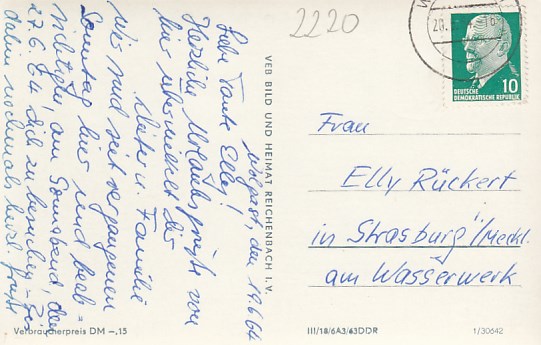 2220
Wolgast, den 19.6.64
Liebe Tante Elly!
Herzliche Urlaubsgrüße von
hier übermittelt Dir
Dieter u. Familie
Wir sind seit vergangenen
Sonntag hier und beab=
sichtigen, am Sonnabend den
27.6.64 Dich zu besuchen. Bis
dahin nochmals herzl. Grüße
VEB BILD UND HEIMAT REICHENBACH I. V.
Verbraucherpreis DM –,15
DEUTSCHE
DEMOKRATISCHE REPUBLIK
10
Frau
Elly Rückert
in Strasburg/Meckl.
am Wasserwerk
III/18/6A3/63DDR
1/30642